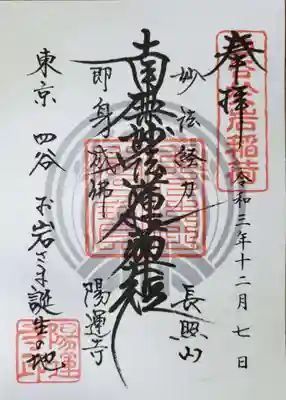 奉拝
令和三年十二月七日
妙法経力
長照山
南無妙法蓮華経
即身成佛
陽運寺
東京 四谷 お岩さま誕生の地
陽運